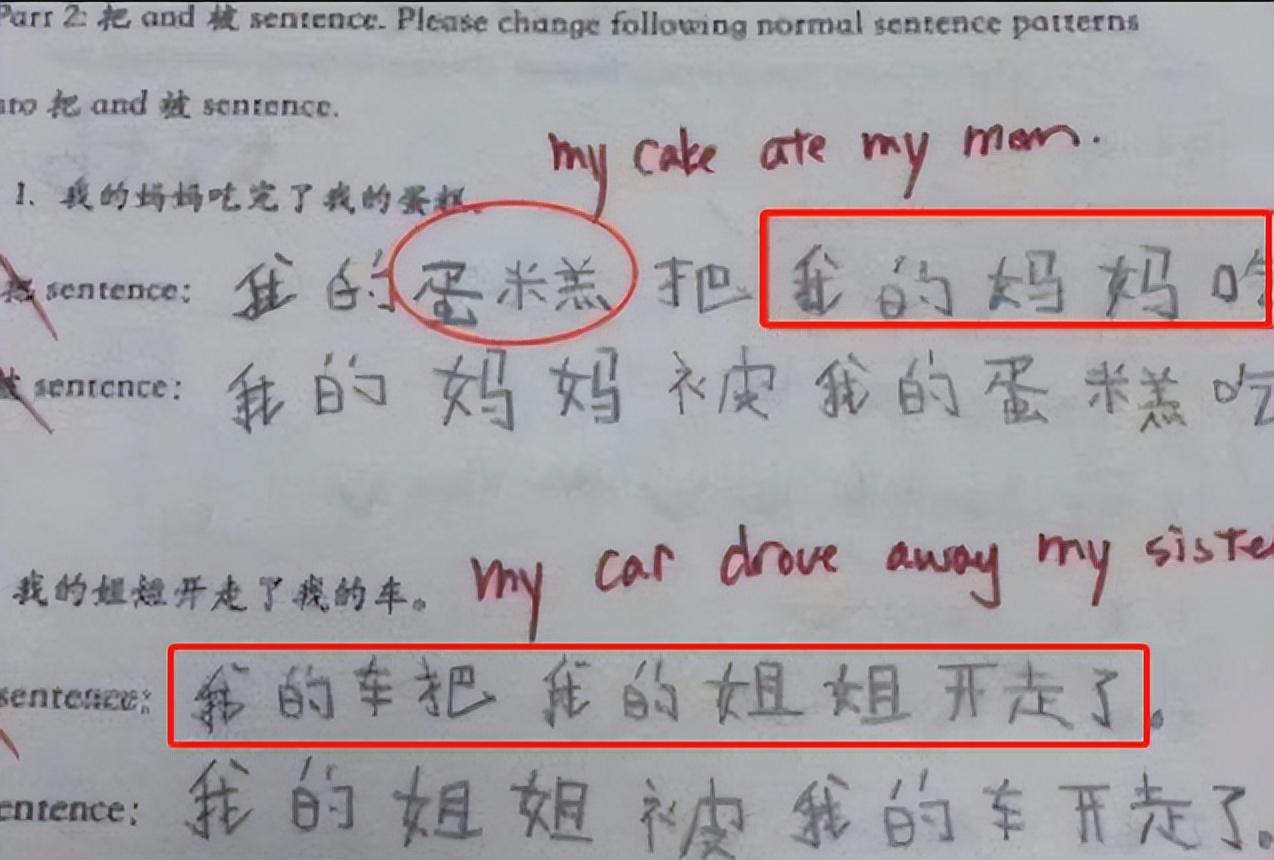 Part 2: 把 and 被 sentence. Please change following normal sentence patterns
nto 把 and 被 sentence.
my cake ate my mom.
1. 我的妈妈吃完了我的蛋糕。
把 sentence: 我的蛋糕把我的妈妈吃
被 sentence: 我的妈妈被我的蛋糕吃
my car drove away my siste
我的姐姐开走了我的车。
sentence: 我的车把我的姐姐开走了。
entence: 我的姐姐被我的车开走了。